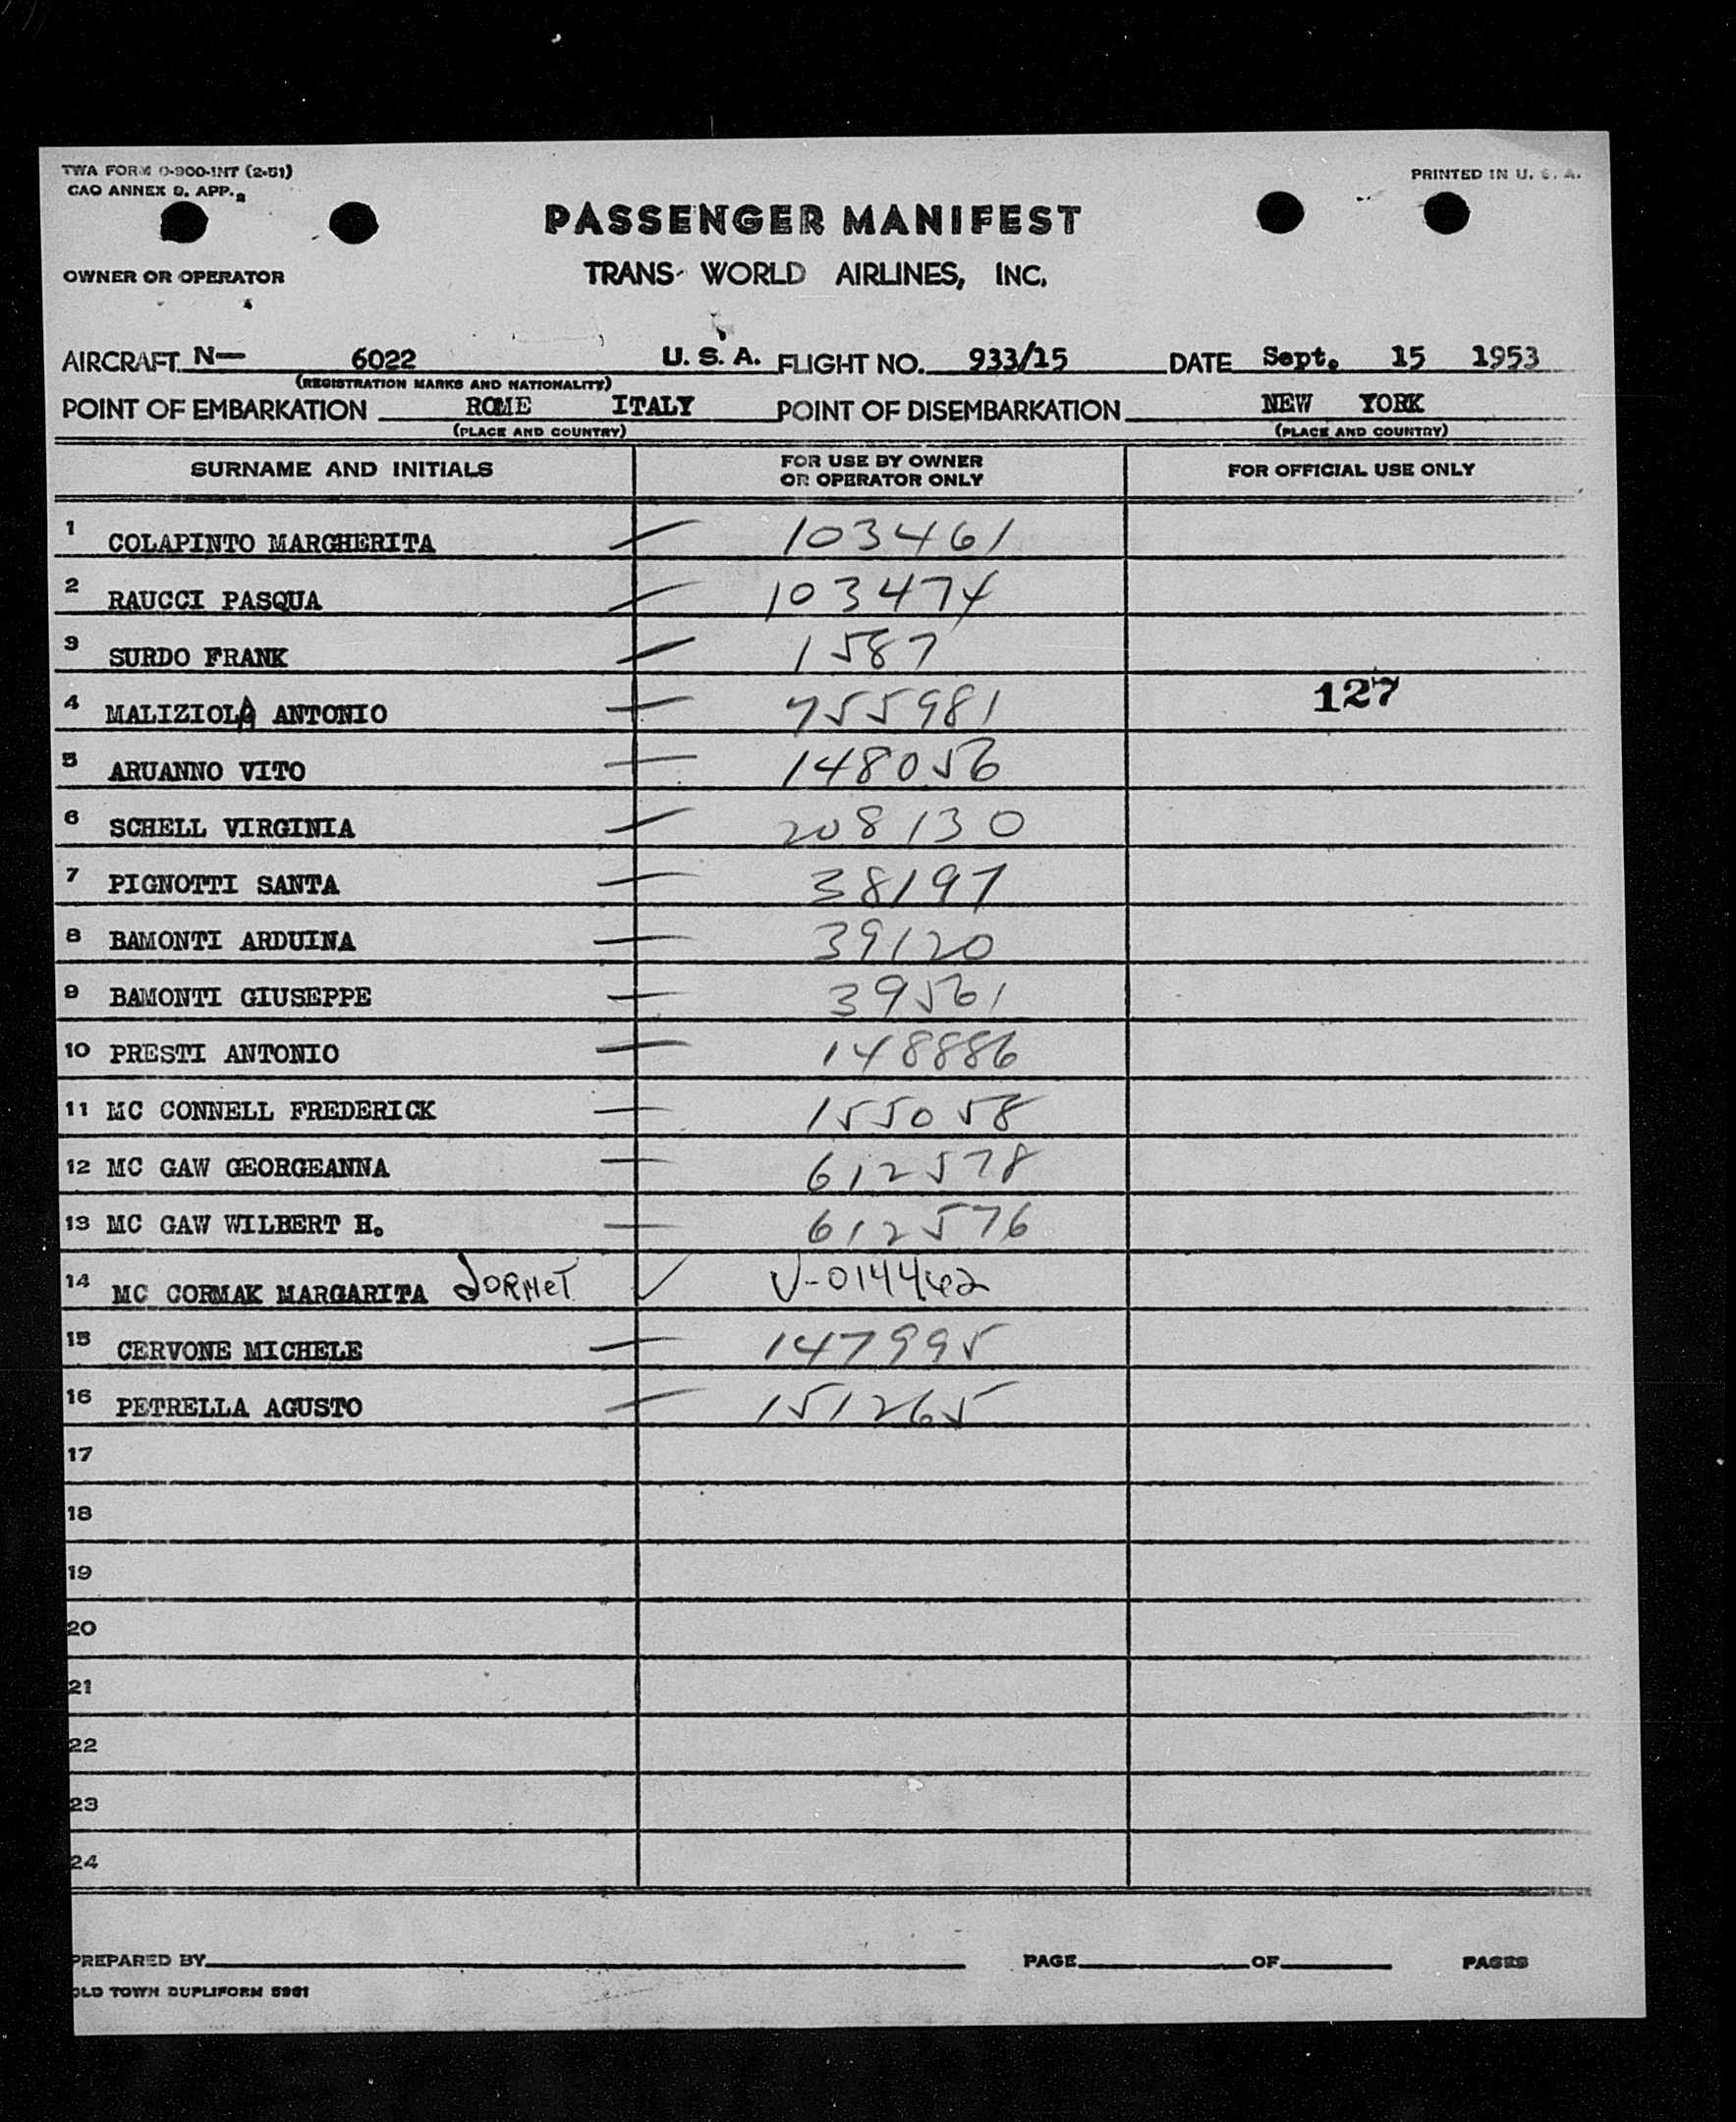 TWA FORM O-900-INT (2-51)
PRINTED IN U. S. A.
CAO ANNEX 9. APP. 2
PASSENGER MANIFEST
OWNER OR OPERATOR
TRANS WORLD AIRLINES, INC.
AIRCRAFT N— 6022 U. S. A. FLIGHT NO. 933/15 DATE Sept. 15 1953
(REGISTRATION MARKS AND NATIONALITY)
POINT OF EMBARKATION ROME ITALY POINT OF DISEMBARKATION NEW YORK
(PLACE AND COUNTRY) (PLACE AND COUNTRY)
SURNAME AND INITIALS FOR USE BY OWNER OR OPERATOR ONLY FOR OFFICIAL USE ONLY
1 COLAPINTO MARGHERITA 103461
2 RAUCCI PASQUA 103474
3 SURDO FRANK 1587
4 MALIZIOLA ANTONIO 755981 127
5 ARUANNO VITO 148056
6 SCHELL VIRGINIA 208130
7 PIGNOTTI SANTA 38197
8 BAMONTI ARDUINA 39120
9 BAMONTI GIUSEPPE 39561
10 PRESTI ANTONIO 148886
11 MC CONNELL FREDERICK 155058
12 MC GAW GEORGEANNA 612578
13 MC GAW WILBERT H. 612576
14 MC CORMAK MARGARITA DORNET ✓ V-014462
15 CERVONE MICHELE 147995
16 PETRELLA AGUSTO 151265
17
18
19
20
21
22
23
24
PREPARED BY PAGE OF PAGES
OLD TOWN DUPLIFORM 5961